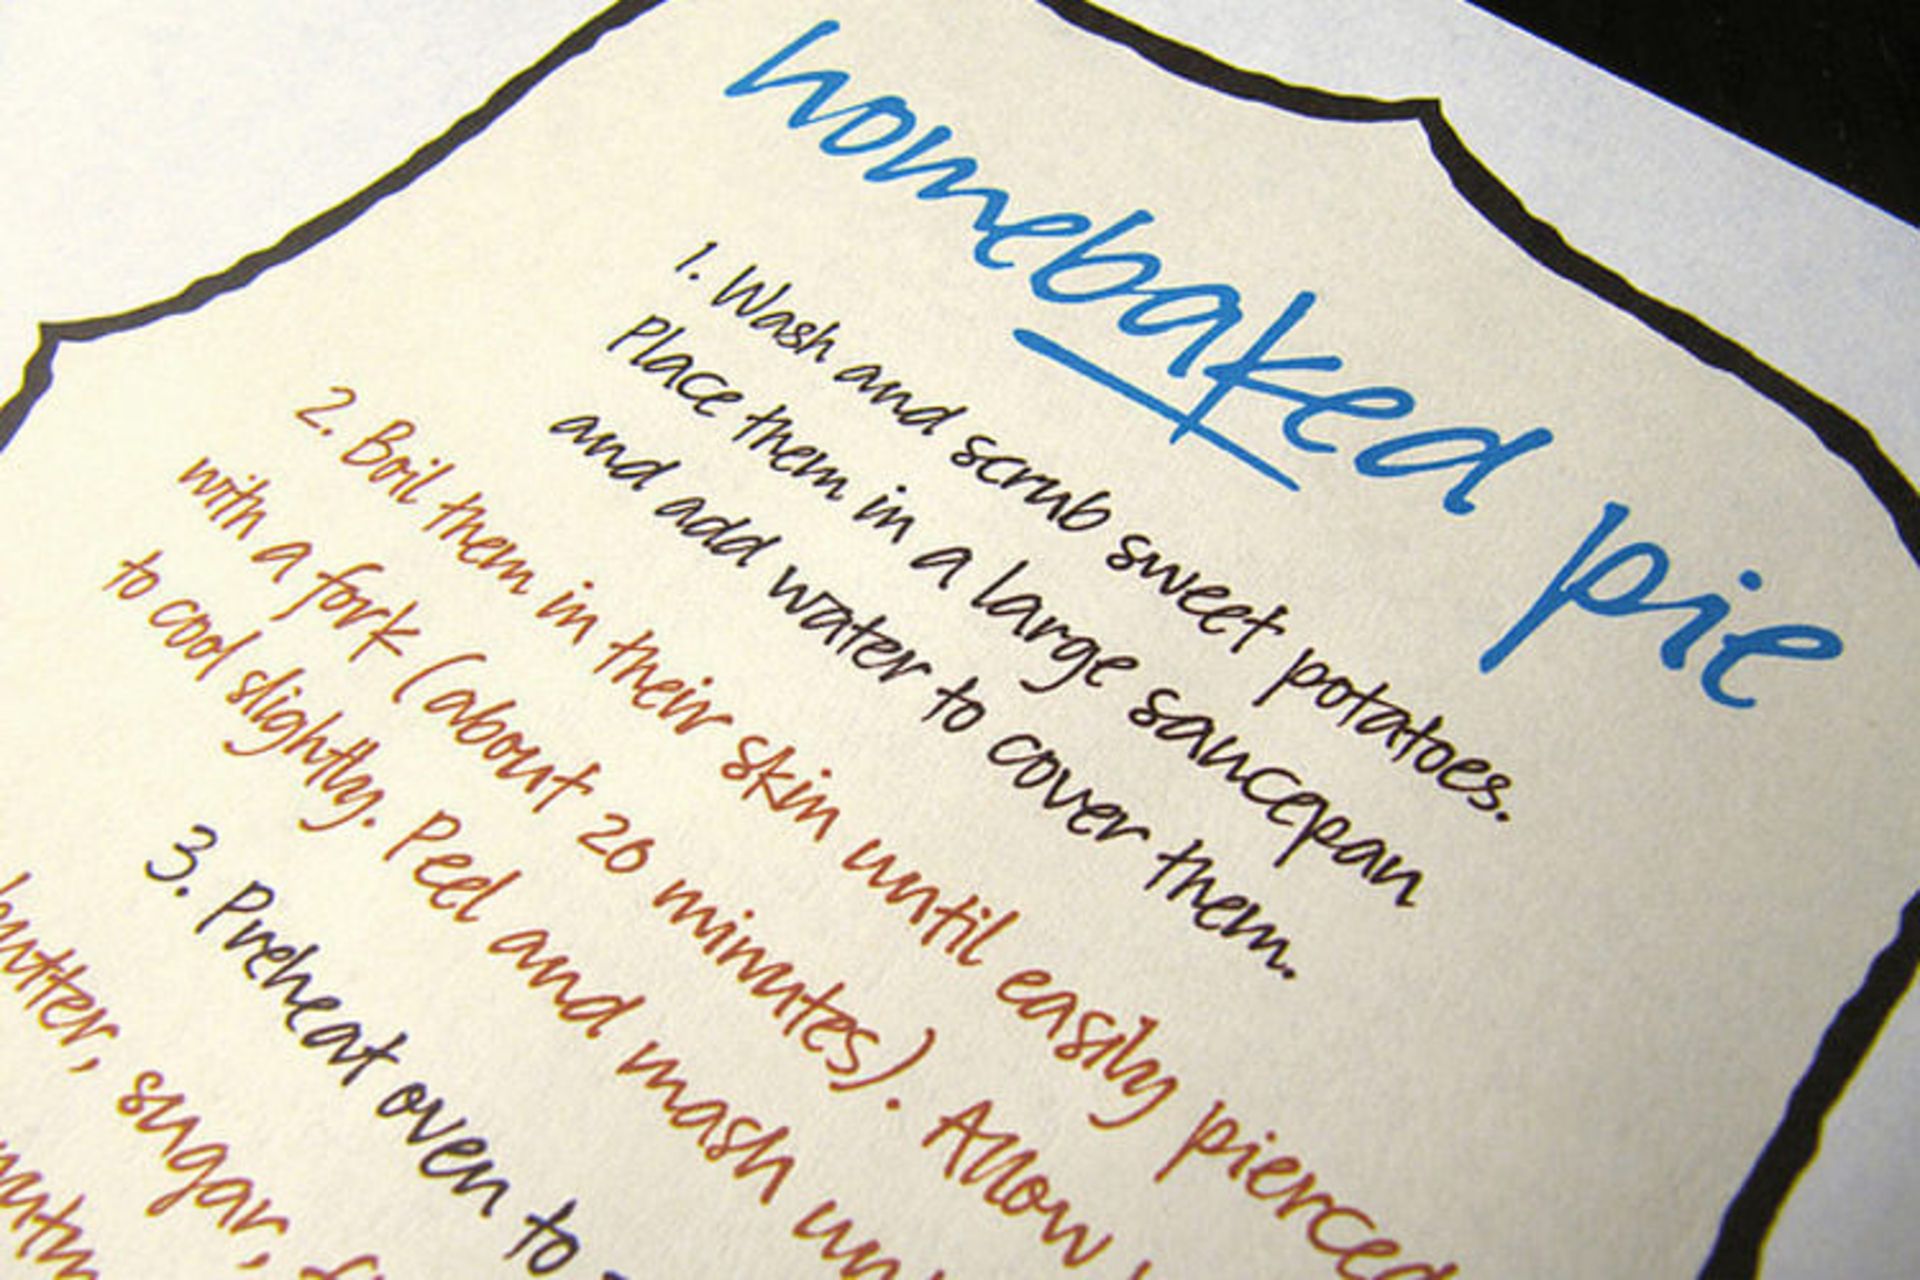 homebaked pie
1. Wash and scrub sweet potatoes.
Place them in a large saucepan
and add water to cover them.
2. Boil them in their skin until easily pierced
with a fork (about 20 minutes). Allow
to cool slightly. Peel and mash
3. Preheat oven to
butter, sugar,